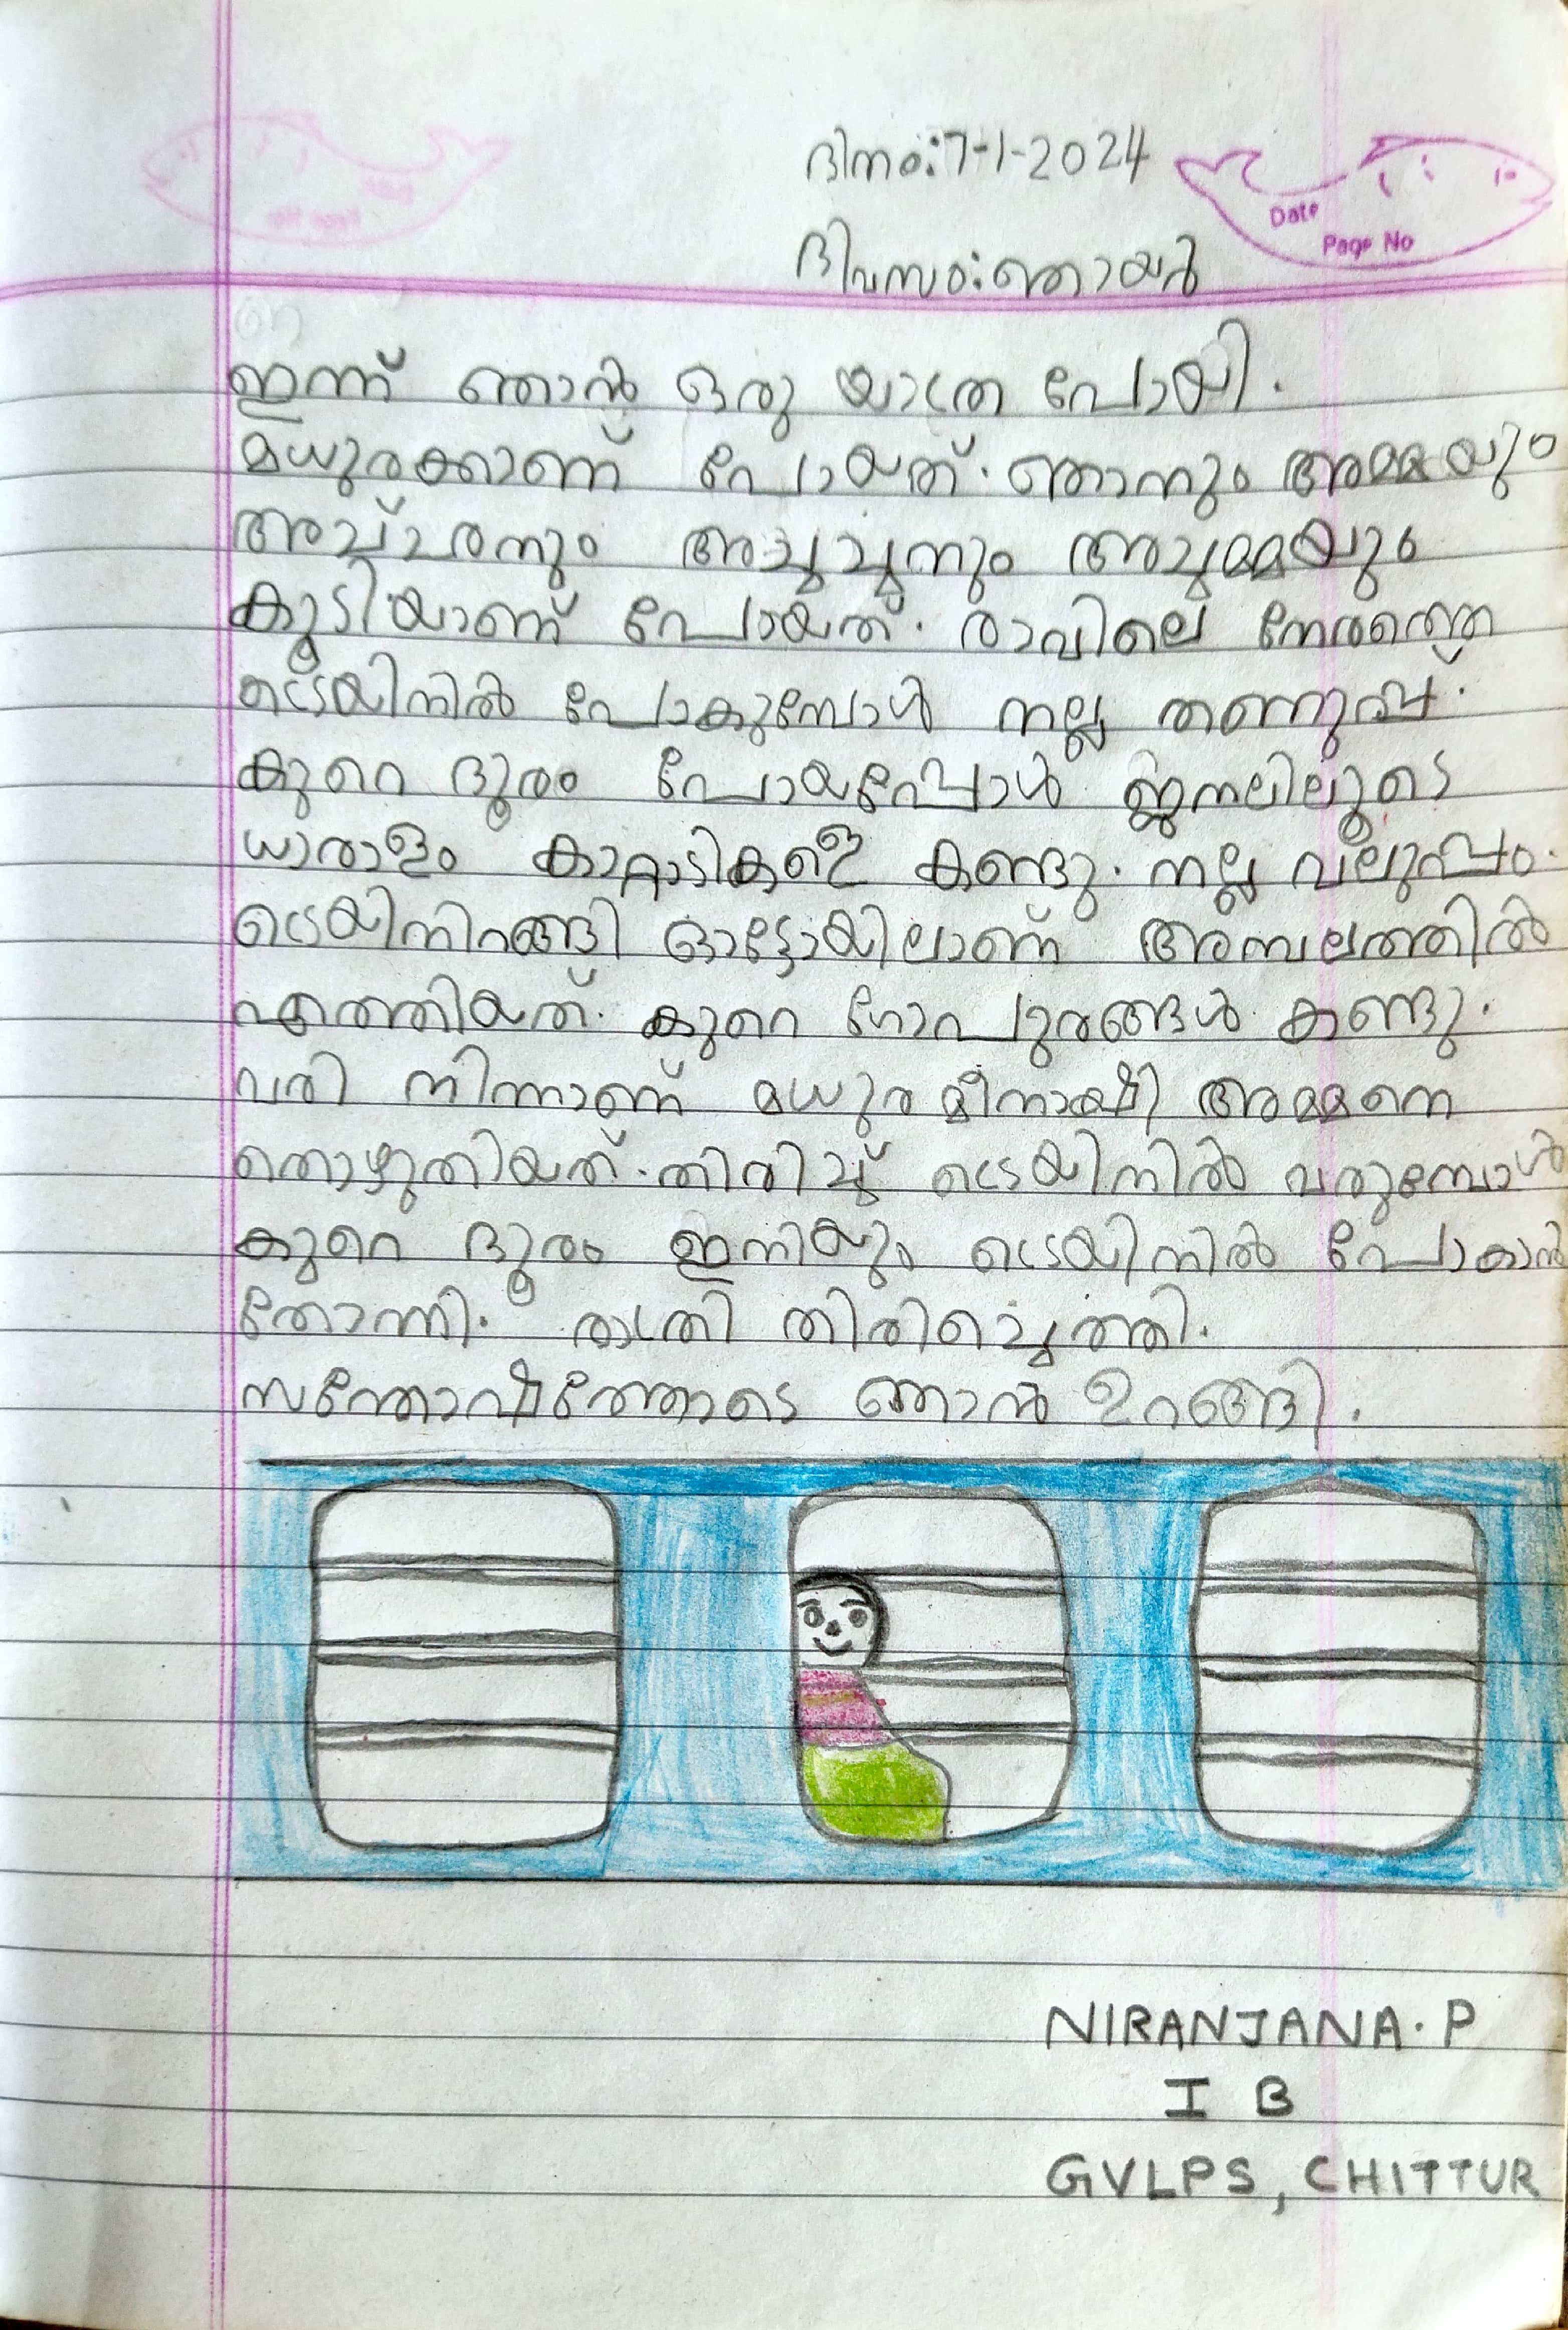 ദിനം:7-1-2024
Date
Page No
ദിവസം:ഞായർ
ഇന്ന് ഞാൻ ഒരു യാത്ര പോയി.
മധുരക്കാണ് പോയത്. ഞാനും അമ്മയും
അച്ഛനും അച്ചച്ചനും അച്ചമ്മയും
കൂടിയാണ് പോയത്. രാവിലെ നേരത്തെ
ട്രെയിനിൽ പോകുമ്പോൾ നല്ല തണുപ്പ്.
കുറെ ദൂരം പോയപ്പോൾ ജനലിലൂടെ
ധാരാളം കാറ്റാടികളെ കണ്ടു. നല്ല വലുപ്പം.
ട്രെയിനിറങ്ങി ഓട്ടോയിലാണ് അമ്പലത്തിൽ
എത്തിയത്. കുറെ ഗോപുരങ്ങൾ കണ്ടു.
വരി നിന്നാണ് മധുര മീനാക്ഷി അമ്മനെ
തൊഴുതിയത്. തിരിച്ച് ട്രെയിനിൽ വരുമ്പോൾ
കുറെ ദൂരം ഇനിയും ട്രെയിനിൽ പോകാൻ
തോന്നി. രാത്രി തിരിച്ചെത്തി.
സന്തോഷത്തോടെ ഞാൻ ഉറങ്ങി.
NIRANJANA. P
I B
GVLPS, CHITTUR